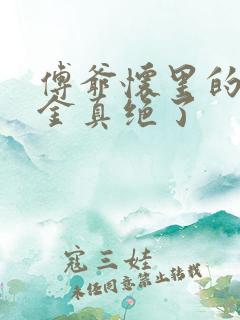 傅爷怀里的
金真绝了
寇三娃
未经同意禁止转载